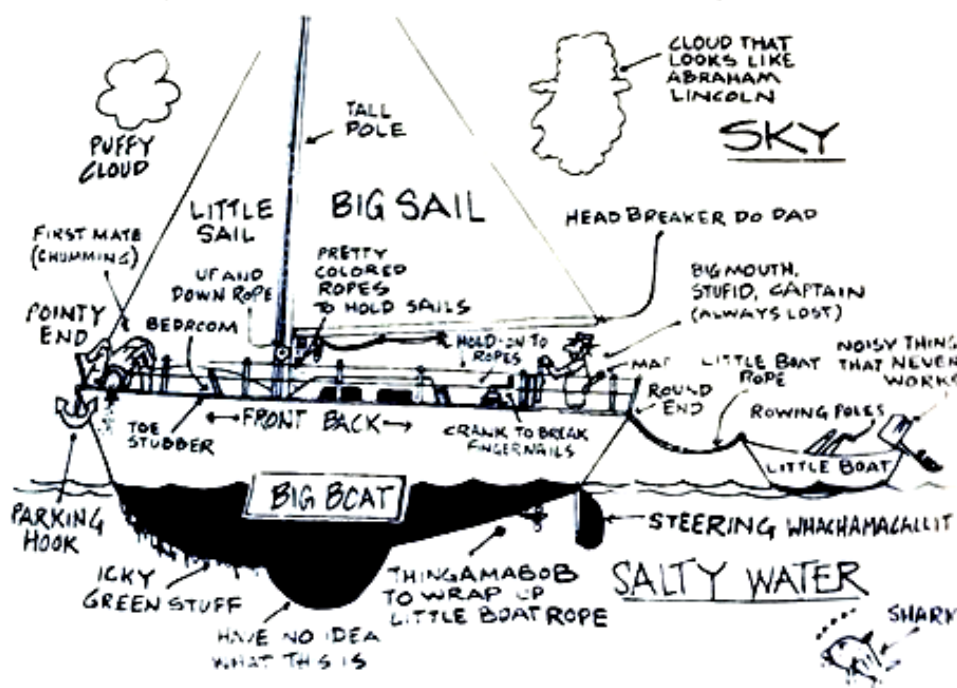 CLOUD THAT
LOOKS LIKE
ABRAHAM
LINCOLN
SKY
PUFFY
CLOUD
TALL
POLE
LITTLE
SAIL
BIG SAIL
HEAD BREAKER DO DAD
FIRST MATE
(CHUMMING)
UP AND
DOWN ROPE
PRETTY
COLORED
ROPES
TO HOLD SAILS
BIG MOUTH,
STUPID, CAPTAIN
(ALWAYS LOST)
POINTY
END
BEDROOM
HOLD-ON TO
ROPES
MAP
LITTLE BOAT
ROPE
NOISY THING
THAT NEVER
WORKS
ROUND
END
ROWING POLES
TOE
STUBBER
FRONT BACK
CRANK TO BREAK
FINGERNAILS
LITTLE BOAT
BIG BOAT
PARKING
HOOK
STEERING WHACHAMACALLIT
ICKY
GREEN STUFF
THINGAMABOB
TO WRAP UP
LITTLE BOAT ROPE
SALTY WATER
HAVE NO IDEA
WHAT THIS IS
SHARK